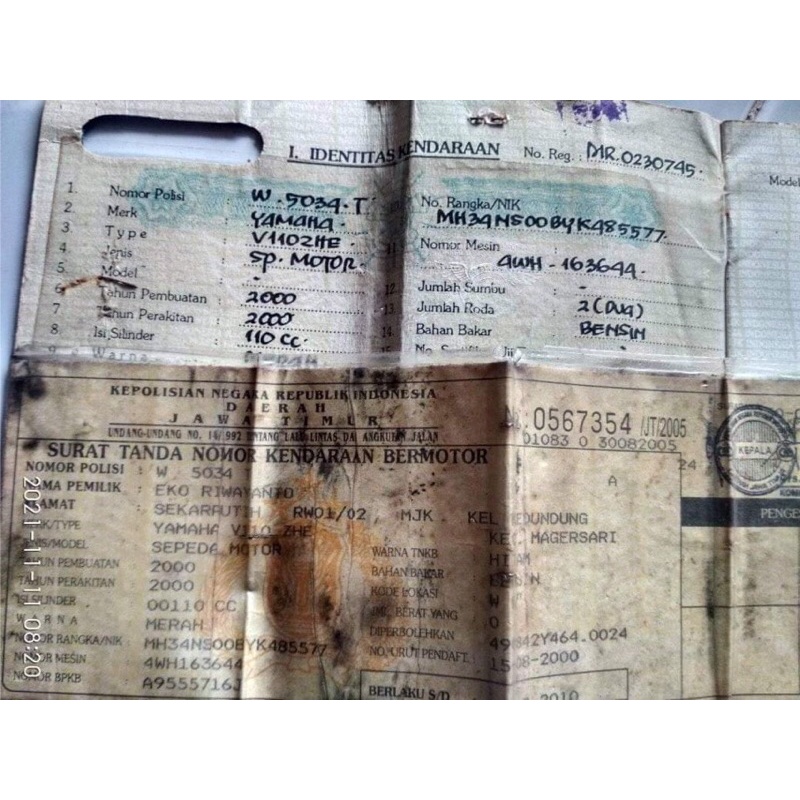 I. IDENTITAS KENDARAAN No. Reg. : MR.0230745.
Model
1. Nomor Polisi : W. 5034. T.
2. Merk : YAMAHA.
3. Type : V110ZHE.
4. Jenis : SP. MOTOR.
5. Model : -
6. Tahun Pembuatan : 2000
7. Tahun Perakitan : 2000
8. Isi Silinder : 110 CC.
No. Rangka/NIK
MH34NS00BYK485577.
11. Nomor Mesin
4WH - 163644.
12. Jumlah Sumbu : -
13. Jumlah Roda : 2 (DUA)
14. Bahan Bakar : BENSIN
KEPOLISIAN NEGARA REPUBLIK INDONESIA
DAERAH
JAWA TIMUR
UNDANG-UNDANG NO. 14/992 TENTANG LALU LINTAS DAN ANGKUTAN JALAN
No. 0567354 /JT/2005
01083 0 30082005
24
A
KEPALA
SURAT TANDA NOMOR KENDARAAN BERMOTOR
NOMOR POLISI : W 5034
NAMA PEMILIK : EKO RIWAYANTO
ALAMAT : SEKARPUTIH RW01/02 MJK KEL KEDUNDUNG
KEC. MAGERSARI
MERK/TYPE : YAMAHA V110 ZHE
JENIS/MODEL : SEPEDA MOTOR
TAHUN PEMBUATAN : 2000
TAHUN PERAKITAN : 2000
ISI SILINDER : 00110 CC
WARNA : MERAH
NOMOR RANGKA/NIK : MH34NS00BYK485577
NOMOR MESIN : 4WH163644
NOMOR BPKB : A9555716J
WARNA TNKB : HITAM
BAHAN BAKAR : BENSIN
KODE LOKASI : W
JML. BERAT YANG
DIPERBOLEHKAN : 0
NO. URUT PENDAFT.
BERLAKU S/D 2010
PENGE
2021-11-11 08:20